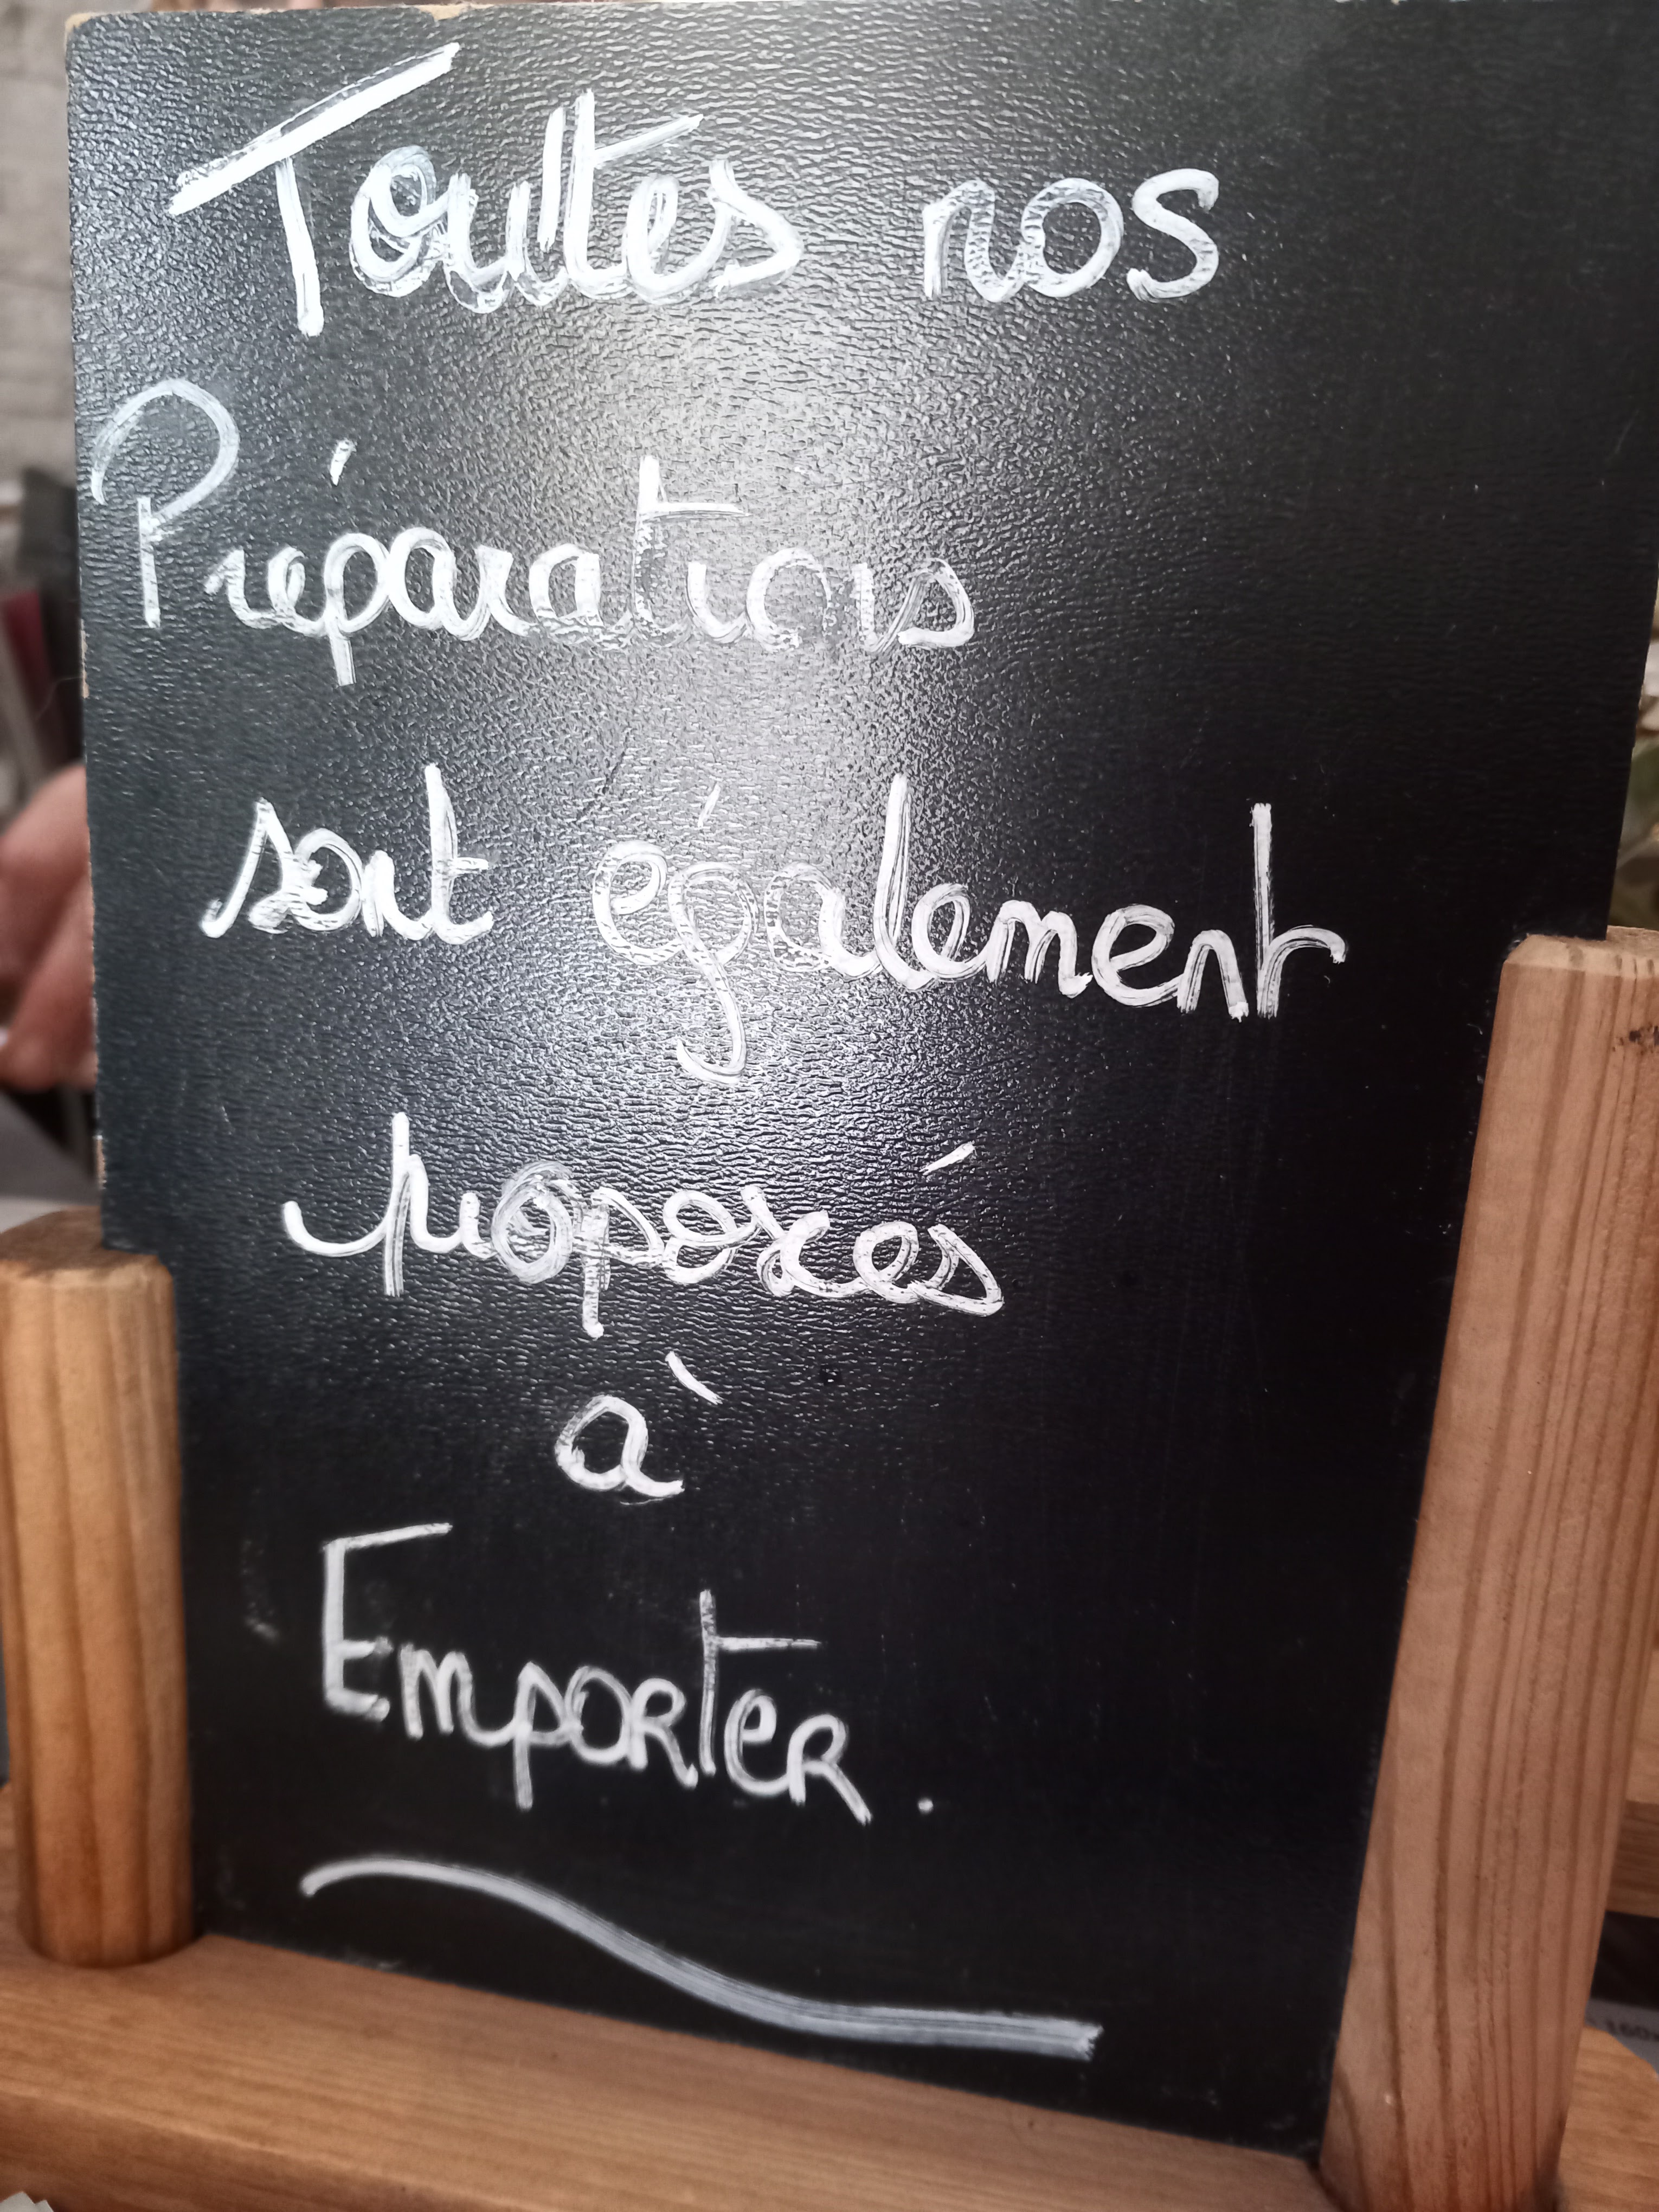 Toutes nos
Préparations
sont également
proposés
à
Emporter.